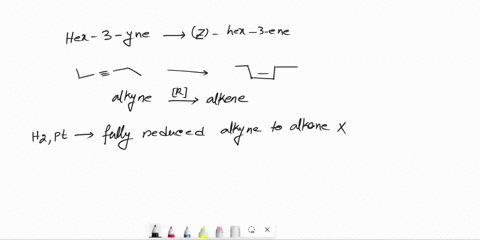 Hex-3-yne → (Z)-hex-3-ene
alkyne [R] → alkene
H2, Pt → fully reduced alkyne to alkane X